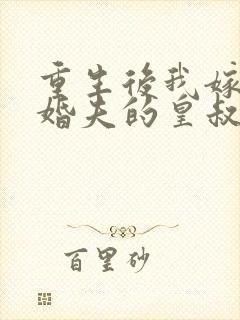 重生後我嫁
婚夫的皇叔
百里砂